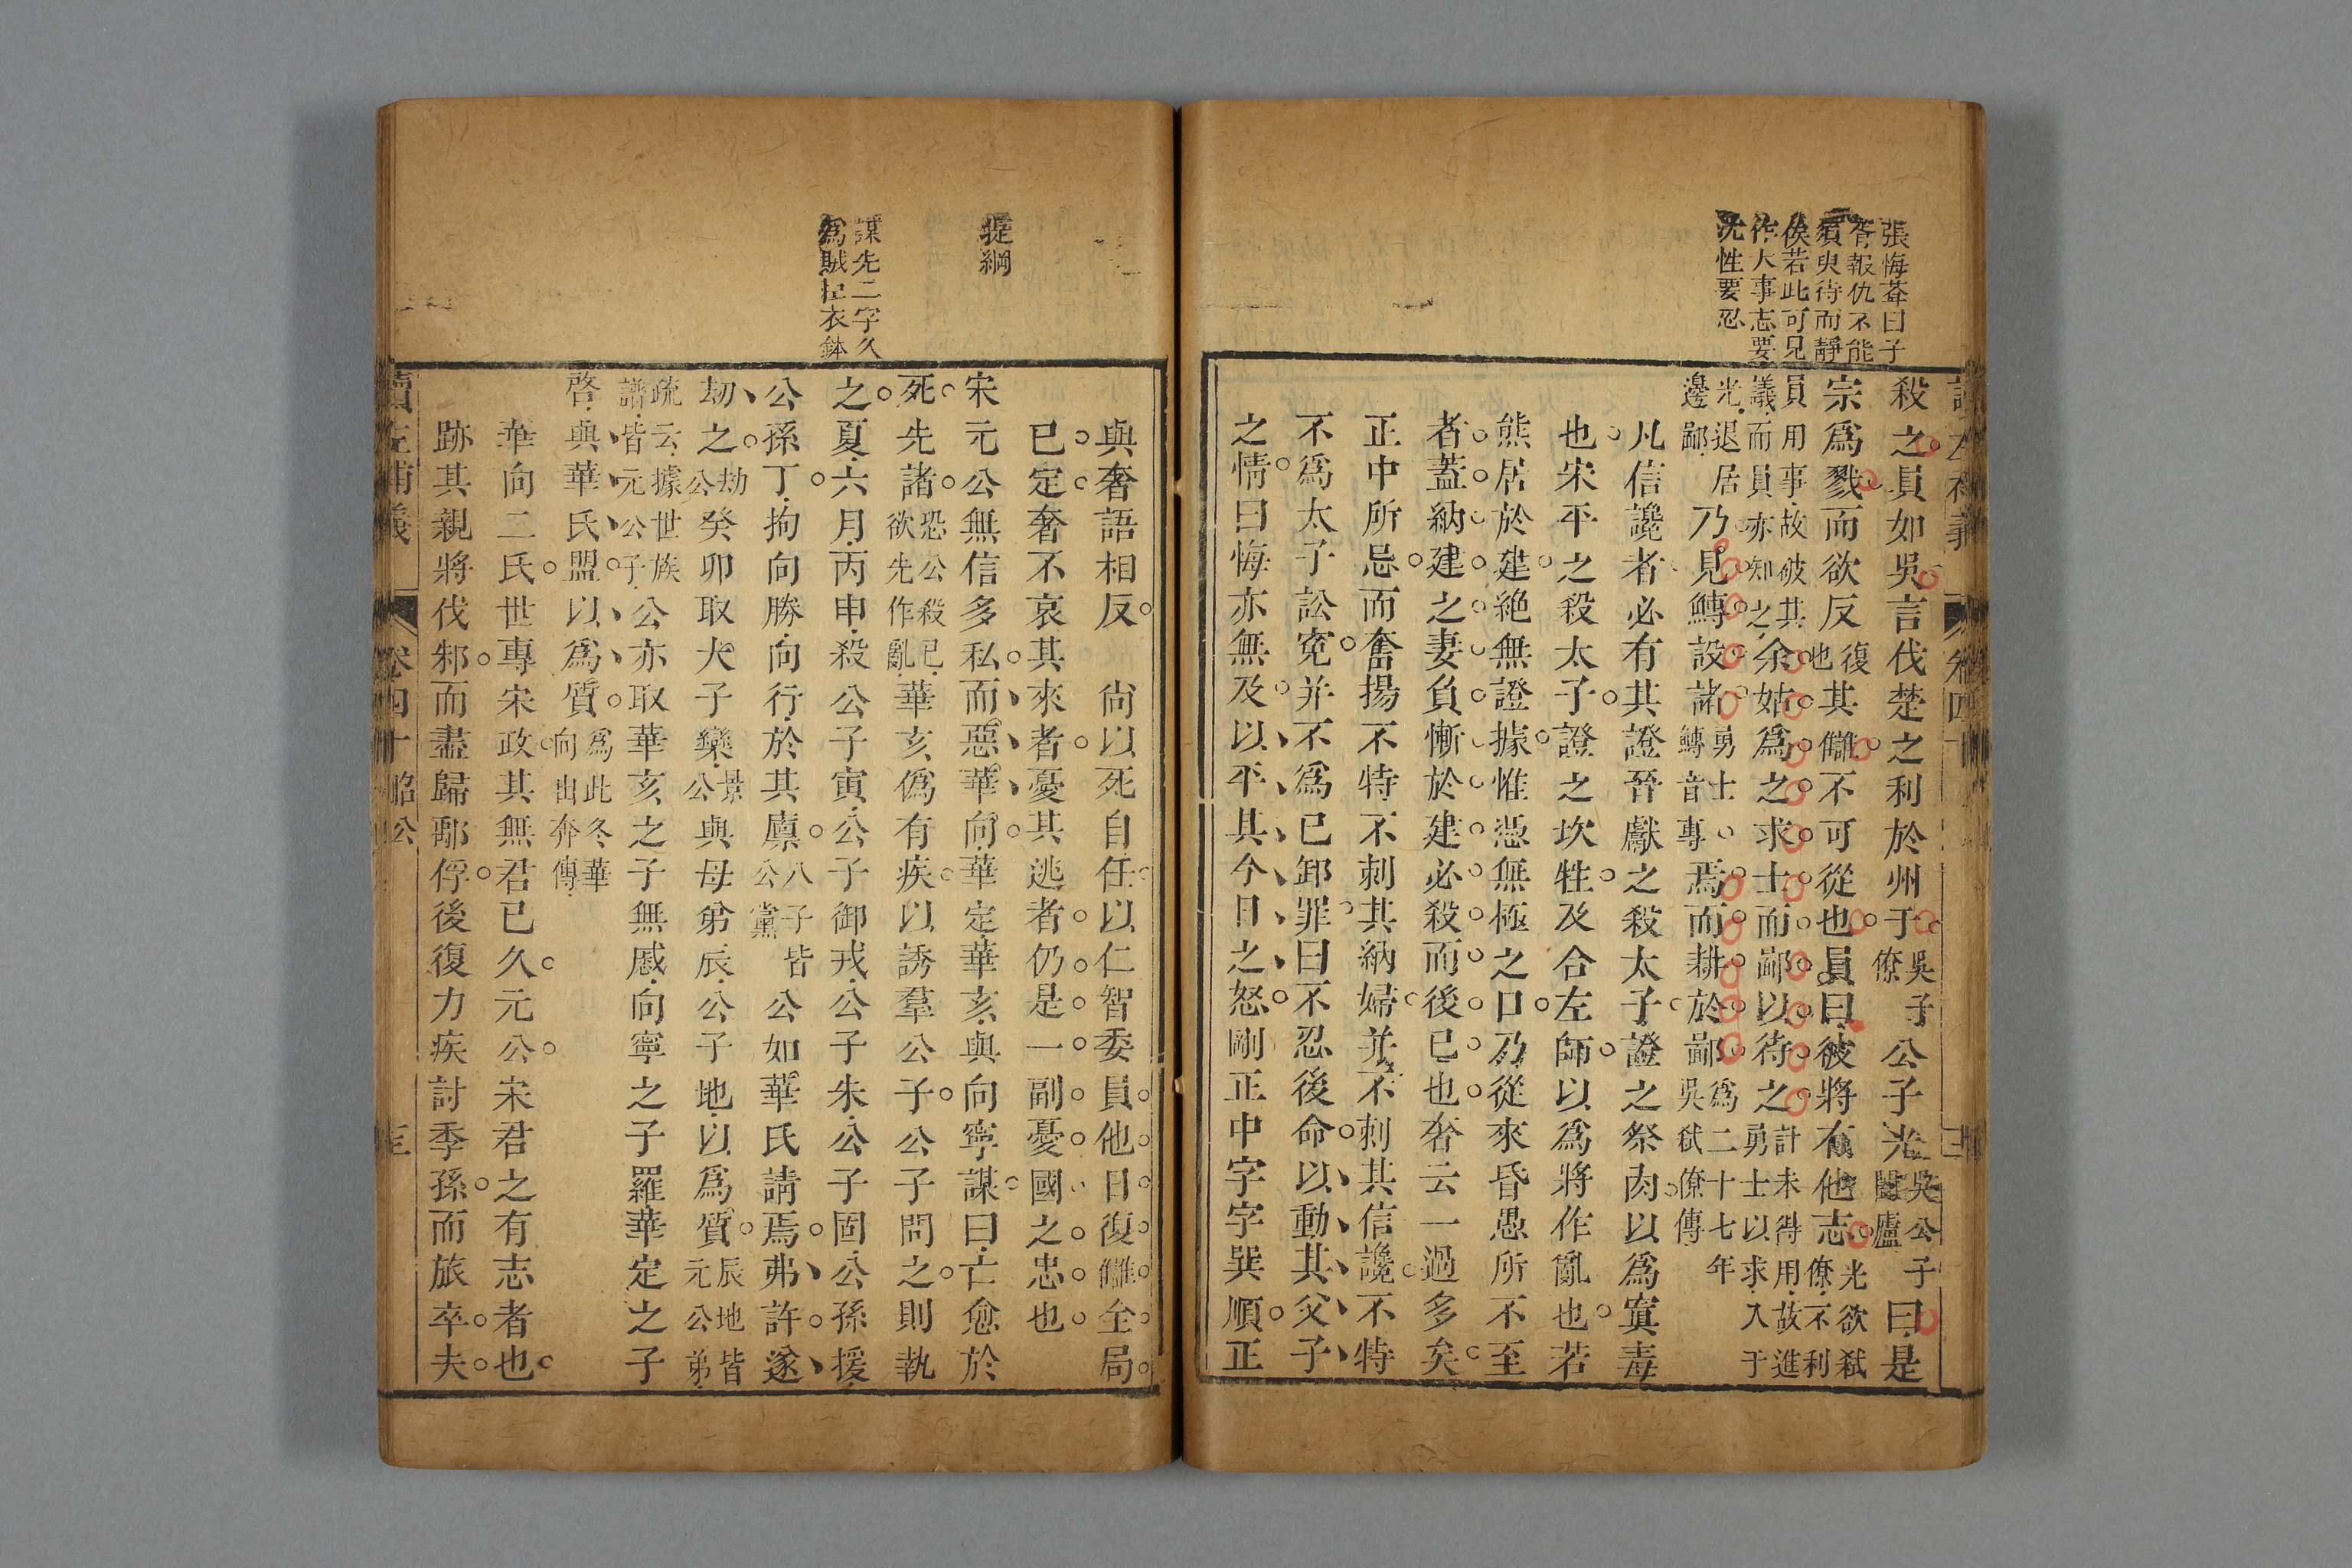 張悔菴曰子
胥報仇不能
須臾待而靜
俟若此可見
作大事志要
沈性要忍
殺之員如吳言伐楚之利於州于吳子僚公子光吳公子闔廬曰是
宗爲戮而欲反復也其讎不可從也員曰彼將有他志光欲弒僚不利
員用事故破其議而員亦知之余姑爲之求士而鄙以待之計未得用故進勇士以求入于
光退居邊鄙乃見鱄設諸勇士鱄音專焉而耕於鄙爲二十七年吳弒僚傳
凡信讒者必有其證晉獻之殺太子證之祭肉以爲寘毒
也宋平之殺太子證之坎牲及合左師以爲將作亂也若
熊居於建絶無證據惟憑無極之口乃從來昏愚所不至
者蓋納建之妻負慚於建必殺而後已也奢云一過多矣
正中所忌而奮揚不特不刺其納婦并不刺其信讒不特
不爲太子訟寃并不爲已卸罪曰不忍後命以動其父子
之情曰悔亦無及以平其今日之怒剛正中字字巽順正
提綱
謀先二字久
爲賊臣衣鉢
與奢語相反 尙以死自任以仁智委員他日復讎全局
已定奢不哀其來者憂其逃者仍是一副憂國之忠也
宋元公無信多私而惡華向華定華亥與向寧謀曰亡愈於
死先諸恐公殺已欲先作亂華亥僞有疾以誘羣公子公子問之則執
之夏六月丙申殺公子寅公子御戎公子朱公子固公孫援
公孫丁拘向勝向行於其廩八子皆公黨公如華氏請焉弗許遂
劫之劫公癸卯取大子欒景公與母弟辰公子地以爲質辰地皆元公弟
疏云據世族譜皆元公子公亦取華亥之子無慼向寧之子羅華定之子
啓與華氏盟以爲質爲此冬華向出奔傳
華向二氏世專宋政其無君已久元公宋君之有志者也
跡其親將伐邾而盡歸鄅俘後復力疾討季孫而旅卒夫
讀左補義 卷四十 昭公